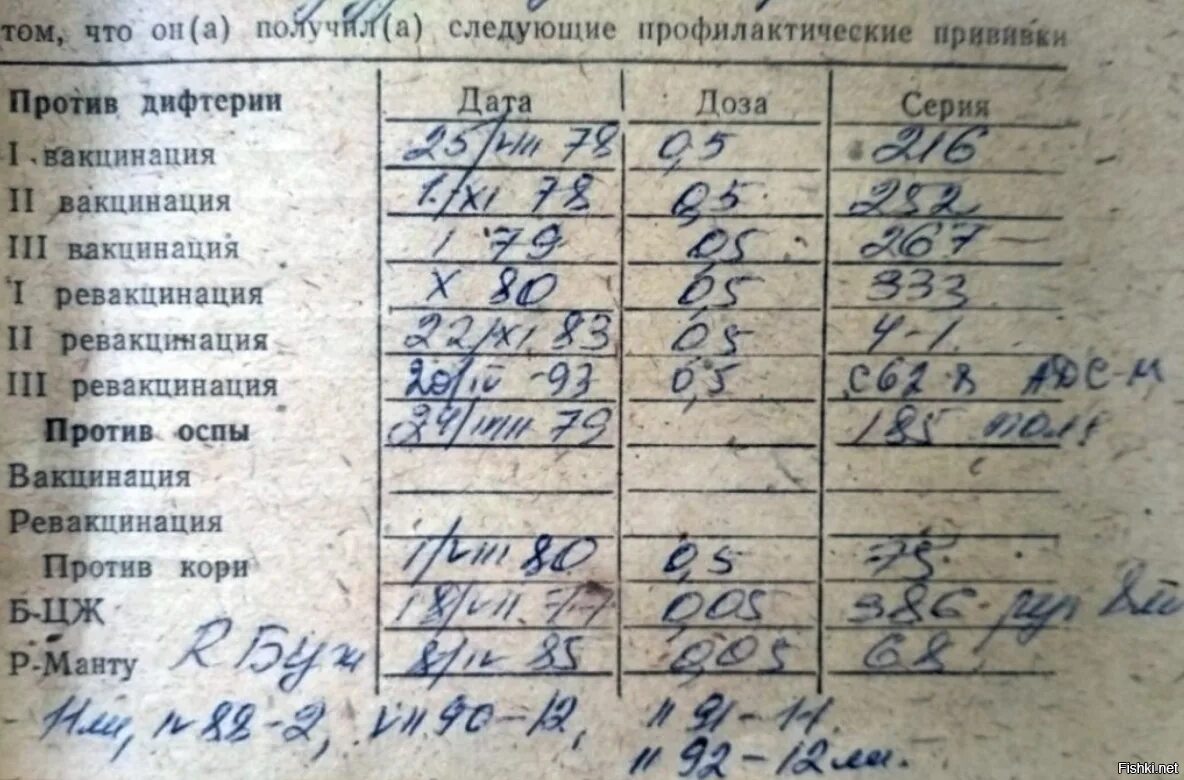 том, что он(а) получил(а) следующие профилактические прививки
Против дифтерии Дата Доза Серия
I вакцинация 25/VIII 78 0,5 216
II вакцинация 1/XI 78 0,5 292
III вакцинация I 79 0,5 267
I ревакцинация X 80 0,5 333
II ревакцинация 22/XI 83 0,5 4-1
III ревакцинация 20/IV -93 0,5 С62-8 АДС-М
Против оспы 24/VIII 79 185
Вакцинация
Ревакцинация
Против кори 1/VIII 80 0,5 75
Б-ЦЖ 18/VII 77 0,05 386
Р-Манту R 8/IV 85 0,05 68
11 мм, IV 88-2, VII 90-12, II 91-11
II 92-12 мм.
Fishki.net